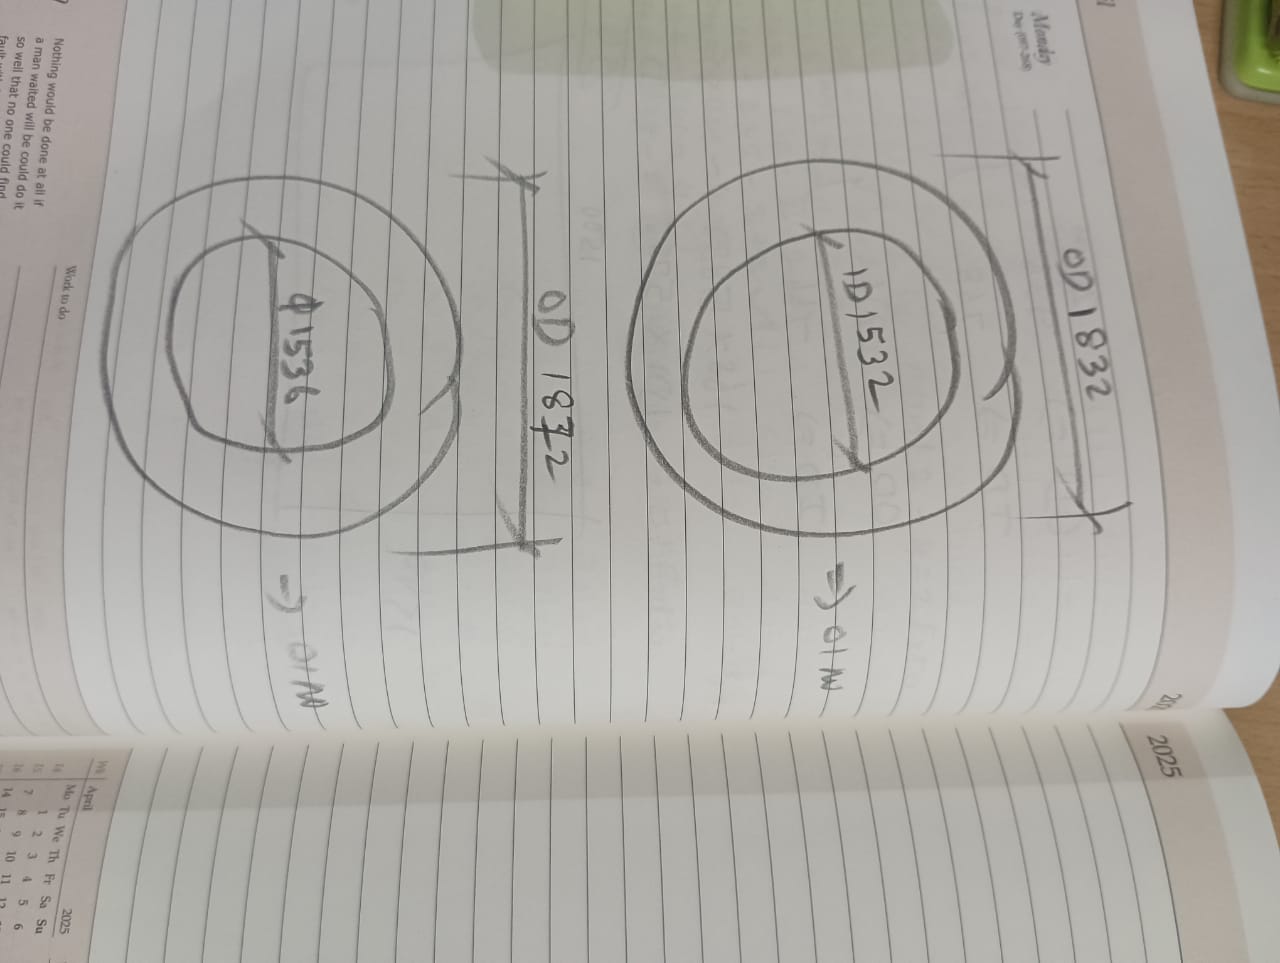 2025
Monday
OD 1832
ID 1532
⇒ 01 N
OD 1872
Φ1536
⇒ 01 N
Nothing would be done at all if
a man waited will be could do it
so well that no one could find
Work to do
Wk April 2025
Mo Tu We Th Fr Sa Su
14 1 2 3 4 5 6
15 7 8 9 10 11 12
16 14 15